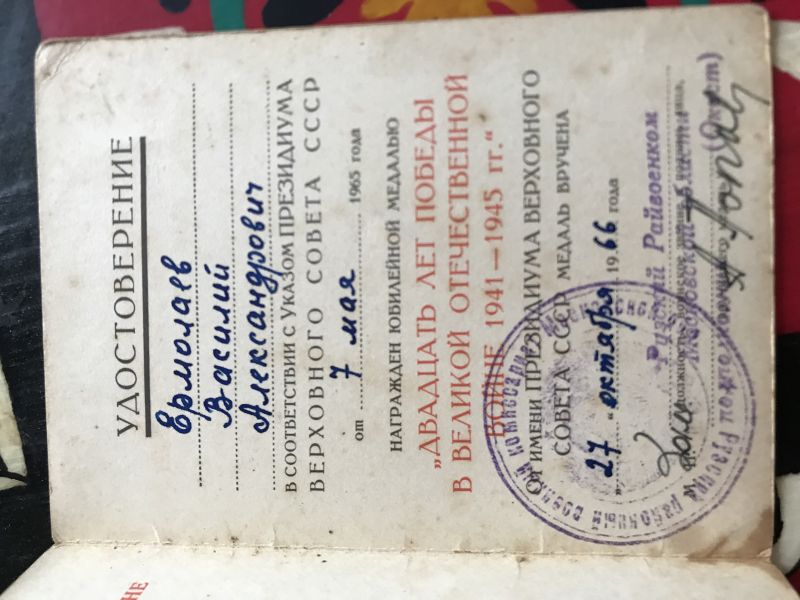 УДОСТОВЕРЕНИЕ
Ермолаев
Василий
Александрович
В СООТВЕТСТВИИ С УКАЗОМ ПРЕЗИДИУМА
ВЕРХОВНОГО СОВЕТА СССР
от 7 мая 1965 года
НАГРАЖДЕН ЮБИЛЕЙНОЙ МЕДАЛЬЮ
„ДВАДЦАТЬ ЛЕТ ПОБЕДЫ
В ВЕЛИКОЙ ОТЕЧЕСТВЕННОЙ
ВОЙНЕ 1941—1945 гг.“
ОТ ИМЕНИ ПРЕЗИДИУМА ВЕРХОВНОГО
СОВЕТА СССР МЕДАЛЬ ВРУЧЕНА
„27“ октября 1966 года
Рузский Райвоенком
Московской области
М. П.
подполковник
НЕ